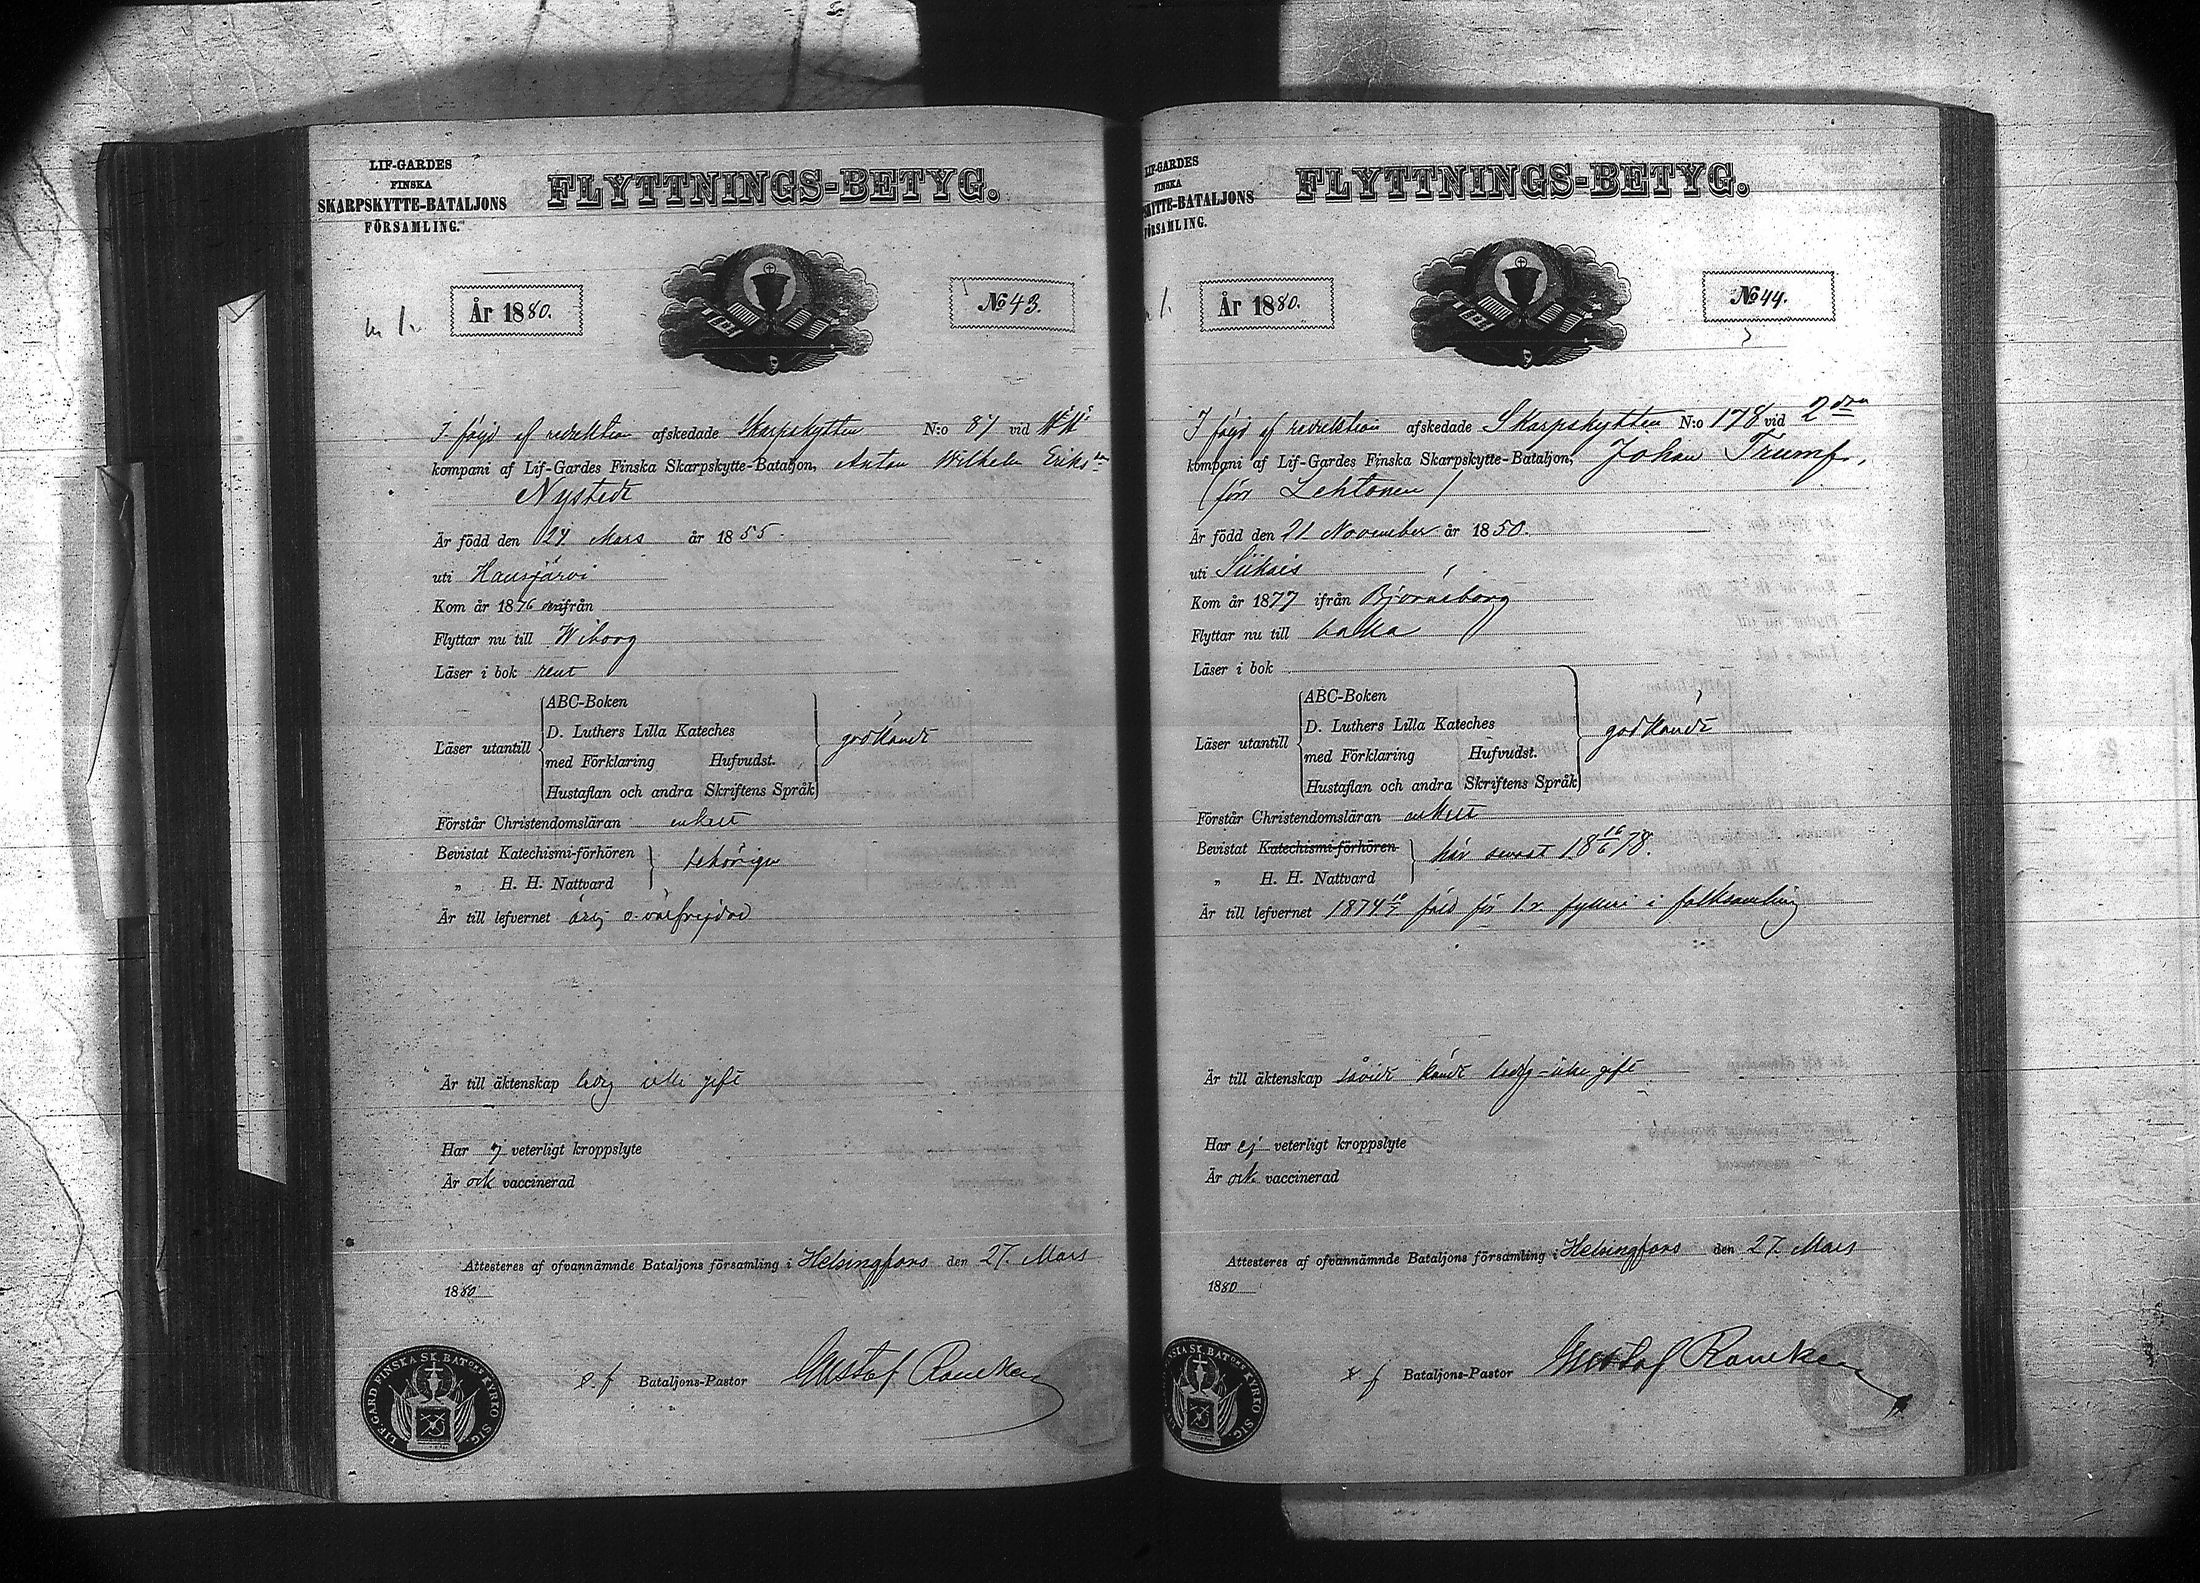 LIF-GARDES
FINSKA
SKARPSKYTTE-BATALJONS
FÖRSAMLING.
FLYTTNINGS-BETYG.
År 1880.
№ 43.
I följd af reduktion afskedade Skarpskytten N:o 87 vid
kompani af Lif-Gardes Finska Skarpskytte-Bataljon, Anton Wilhelm Eriks
Nystedt
Är född den 24 Mars år 1855.
uti Hausjärvi
Kom år 1876 ifrån
Flyttar nu till Wiborg
Läser i bok rent
Läser utantill
ABC-Boken
D. Luthers Lilla Kateches
med Förklaring Hufvudst.
Hustaflan och andra Skriftens Språk
godkändt
Förstår Christendomsläran enkelt
Bevistat Katechismi-förhören
„ H. H. Nattvard
behörigen
Är till lefvernet ärlig o. välfrejdad
Är till äktenskap ledig icke gift
Har ej veterligt kroppslyte
Är ock vaccinerad
Attesteres af ofvannämnde Bataljons församling i Helsingfors den 27. Mars
1880
e. f. Bataljons-Pastor Gustaf Rancken
LIF-GARD FINSKA SK. BAT:ONS KYRKO SIG.
LIF-GARDES
FINSKA
SKYTTE-BATALJONS
FÖRSAMLING.
FLYTTNINGS-BETYG.
År 1880.
№ 44.
I följd af reduktion afskedade Skarpskytten N:o 178 vid 2dra
kompani af Lif-Gardes Finska Skarpskytte-Bataljon, Johan Trumf,
(förr Lehtonen)
Är född den 21 November år 1850.
uti Siikais
Kom år 1877 ifrån Björneborg
Flyttar nu till baka
Läser i bok
Läser utantill
ABC-Boken
D. Luthers Lilla Kateches
med Förklaring Hufvudst.
Hustaflan och andra Skriftens Språk
godkändt
Förstår Christendomsläran enkelt
Bevistat Katechismi-förhören
„ H. H. Nattvard
här senast 18 16/6 78.
Är till lefvernet 1874 fäld för 1:r fylleri i folksamling
Är till äktenskap såvidt kändt ledig - icke gift
Har ej veterligt kroppslyte
Är ock vaccinerad
Attesteres af ofvannämnde Bataljons församling i Helsingfors den 27 Mars
1880
e. f. Bataljons-Pastor Gustaf Rancken
SKA SK. BAT:ONS KYRKO SIG.